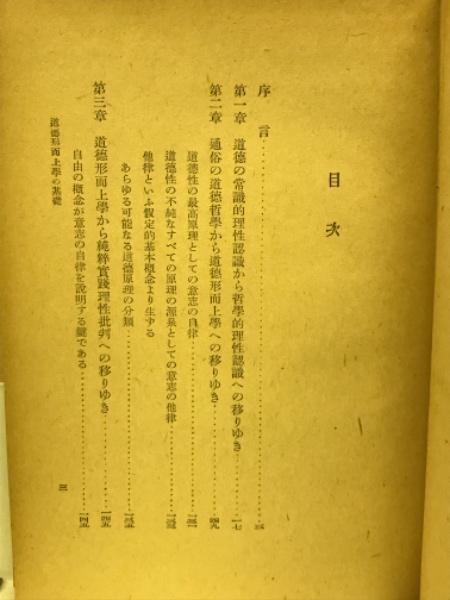 目次
序言 三
第一章 道德の常識的理性認識から哲學的理性認識への移りゆき 一七
第二章 通俗の道德哲學から道德形而上學への移りゆき 四九
道德性の最高原理としての意志の自律
道德性の不純なすべての原理の源泉としての意志の他律
他律といふ假定的基本概念より生ずる
あらゆる可能なる道德原理の分類
第三章 道德形而上學から純粹實踐理性批判への移りゆき
自由の概念が意志の自律を説明する鍵である
道德形而上學の基礎
三